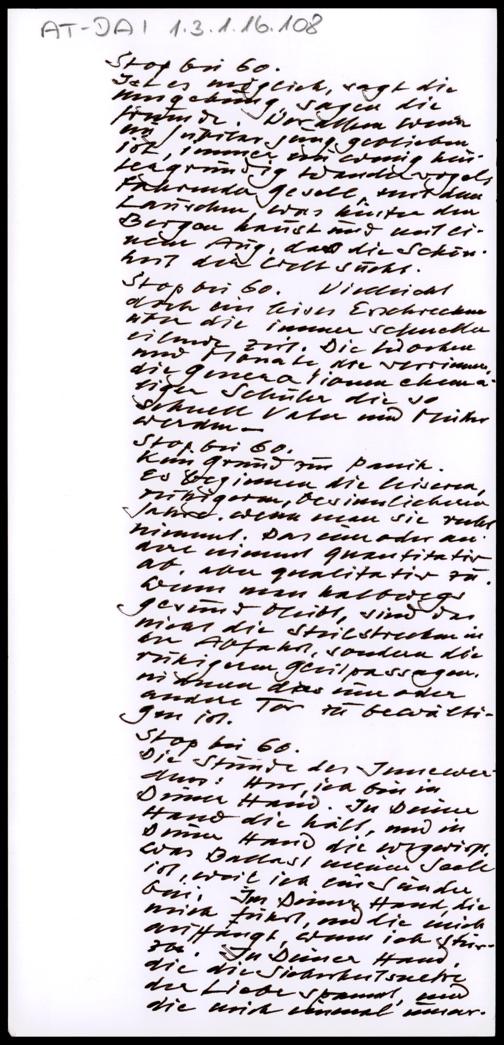 AT-DAI 1.3.1.16.108
Stop bei 60.
Ist es möglich, sagt die
Umgebung, sagen die
Freunde. Vor allem wenn
man jung geblieben
ist, immer ein wenig hin-
tergründig Wandervogel
fahrender Gesell, mit dem
Lauschen, was hinter den
Bergen haust und mit ei-
nem Aug, das die Schön-
heit der Welt sucht.
Stop bei 60. Vielleicht
doch ein leises Erschrecken
über die immer schneller
eilende Zeit. Die Wochen
und Monate, die verrinnen,
die Generationen ehema-
liger Schüler die so
schnell Vater und Mutter
werden –
Stop bei 60.
Kein Grund zur Panik.
Es beginnen die leiseren,
ruhigeren, besinnlicheren
Jahre. wenn man sie recht
nimmt. Das eine oder an-
dere nimmt quantitativ
ab, aber qualitativ zu.
Wenn man halbwegs
gesund bleibt, sind das
nicht die Steilstrecken in
der Abfahrt, sondern die
ruhigeren Gleitpassagen,
in denen das eine oder
andere Tor zu bewälti-
gen ist.
Stop bei 60.
Die Stunde des Innewer-
dens: Herr, ich bin in
Deiner Hand. In Deiner
Hand die hält, und in
Deiner Hand die wegwirft
was Ballast meiner Seele
ist, weil ich ein Sünder
bin. In Deiner Hand, die
mich führt, und die mich
auffängt, wenn ich stür-
ze. In Deiner Hand,
die die Sicherheitsnetze
der Liebe spannt, und
die mich einmal unwi-